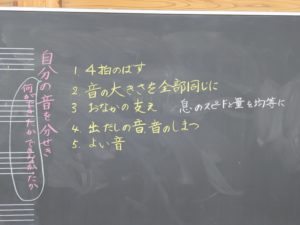 自分の音を分せき
何ができたか できなかったか
1 4拍のばす
2 音の大きさを全部同じに
3 おなかの支え 息のスピードと量を均等に
4. 出だしの音、音のしまつ
5. よい音